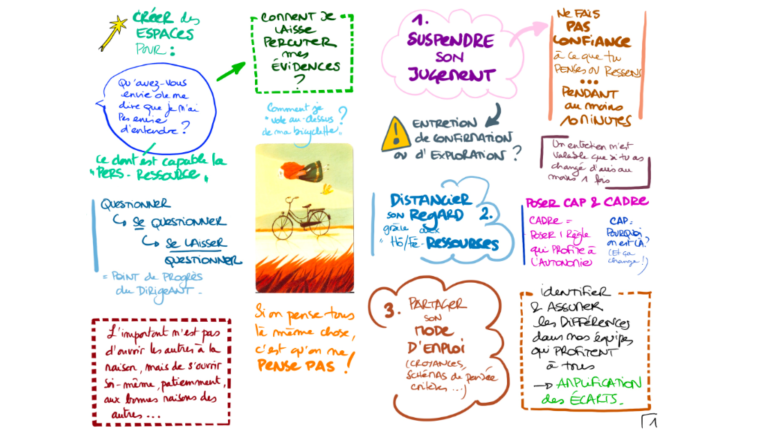 CRÉER des
ESPACES
POUR :
Qu'avez-vous
envie de me
dire que je n'ai
pas envie
d'entendre ?
Ce dont est capable la
"PERS-RESSOURCE"
QUESTIONNER
↳ SE QUESTIONNER
↳ SE LAISSER
QUESTIONNER
= POINT DE PROGRÈS
du DIRIGEANT.
L'important n'est pas
d'ouvrir les autres à la
raison, mais de s'ouvrir
soi-même, patiemment,
aux bonnes raisons des
autres...
COMMENT JE
LAISSE
PERCUTER
mes
ÉVIDENCES
?
Comment je
"vole au-dessus
de ma bicyclette" ?
Si on pense tous
la même chose,
c'est qu'on ne
PENSE PAS !
1.
SUSPENDRE
SON
JUGEMENT
ENTRETIEN
de CONFIRMATION
ou d'EXPLORATION ?
DISTANCIER
son REGARD 2.
grâce aux
Ho/Fe-RESSOURCES
3. PARTAGER
SON
MODE
D'EMPLOI
(CROYANCES,
SCHÉMAS de pensée
critères ...)
NE FAIS
PAS
CONFIANCE
à ce que tu
PENSES OU RESSENS
...
PENDANT
au moins
10 MINUTES
Un entretien n'est
valable que si tu as
changé d'avis au
moins 1 fois
POSER CAP & CADRE
CADRE =
POSER 1 Règle
qui PROFITE à
L'AUTONOMIE
CAP :
POURQUOI
on est LÀ ?
(Et ça
change !)
identifier
& ASSUMER
les DIFFÉRENCES
dans nos équipes
qui PROFITENT
à tous
→ AMPLIFICATION
des ÉCARTS.
1